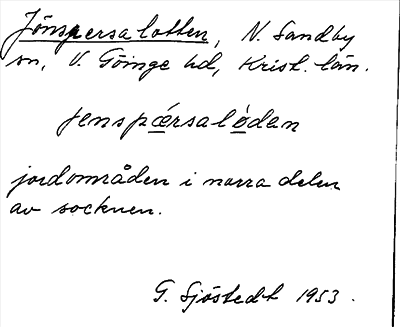 Jönspersalotten, N. Sandby
sn, V. Göinge hd, Krist. län.
jenspǽrsalòdan
jordområden i norra delen
av socknen.
G. Sjöstedt 1953.